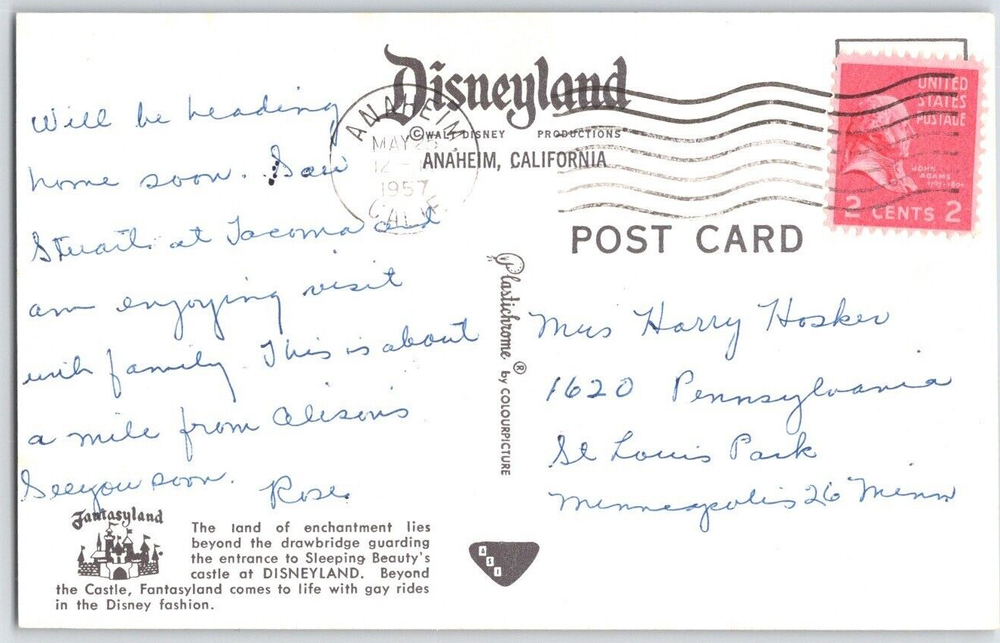 Disneyland
© WALT DISNEY PRODUCTIONS
ANAHEIM, CALIFORNIA
POST CARD
ANAHEIM
MAY 25
12
1957
CALIF
UNITED
STATES
POSTAGE
JOHN
ADAMS
2 CENTS 2
Will be heading
home soon. Saw
Stuart at Tacoma and
am enjoying visit
with family. This is about
a mile from Alisons
See you soon.
Rose.
Plastichrome ® by COLOURPICTURE
Mrs Harry Hosker
1620 Pennsylvania
St Louis Park
Minneapolis 26 Minn
Fantasyland
The land of enchantment lies
beyond the drawbridge guarding
the entrance to Sleeping Beauty's
castle at DISNEYLAND. Beyond
the Castle, Fantasyland comes to life with gay rides
in the Disney fashion.